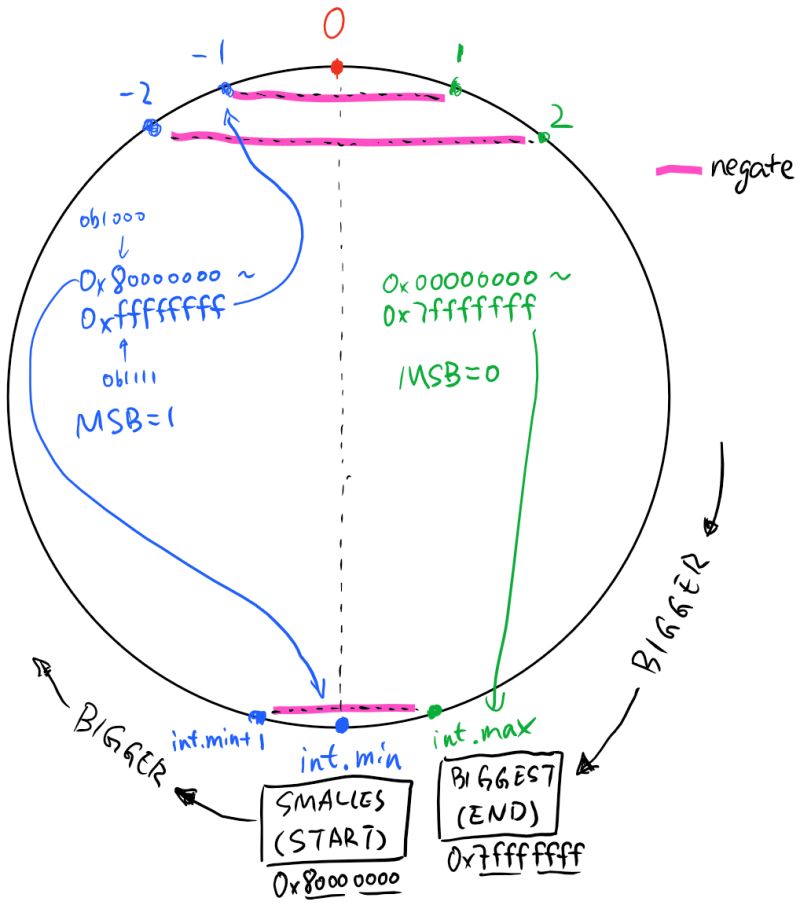 0
-1
1
-2
2
negate
0b1000
0x80000000 ~
0xffffffff
0b1111
MSB=1
0x00000000 ~
0x7fffffff
MSB=0
BIGGER
BIGGER
int.min+1
int.min
int.max
SMALLES
(START)
0x8000 0000
BIGGEST
(END)
0x7fff ffff